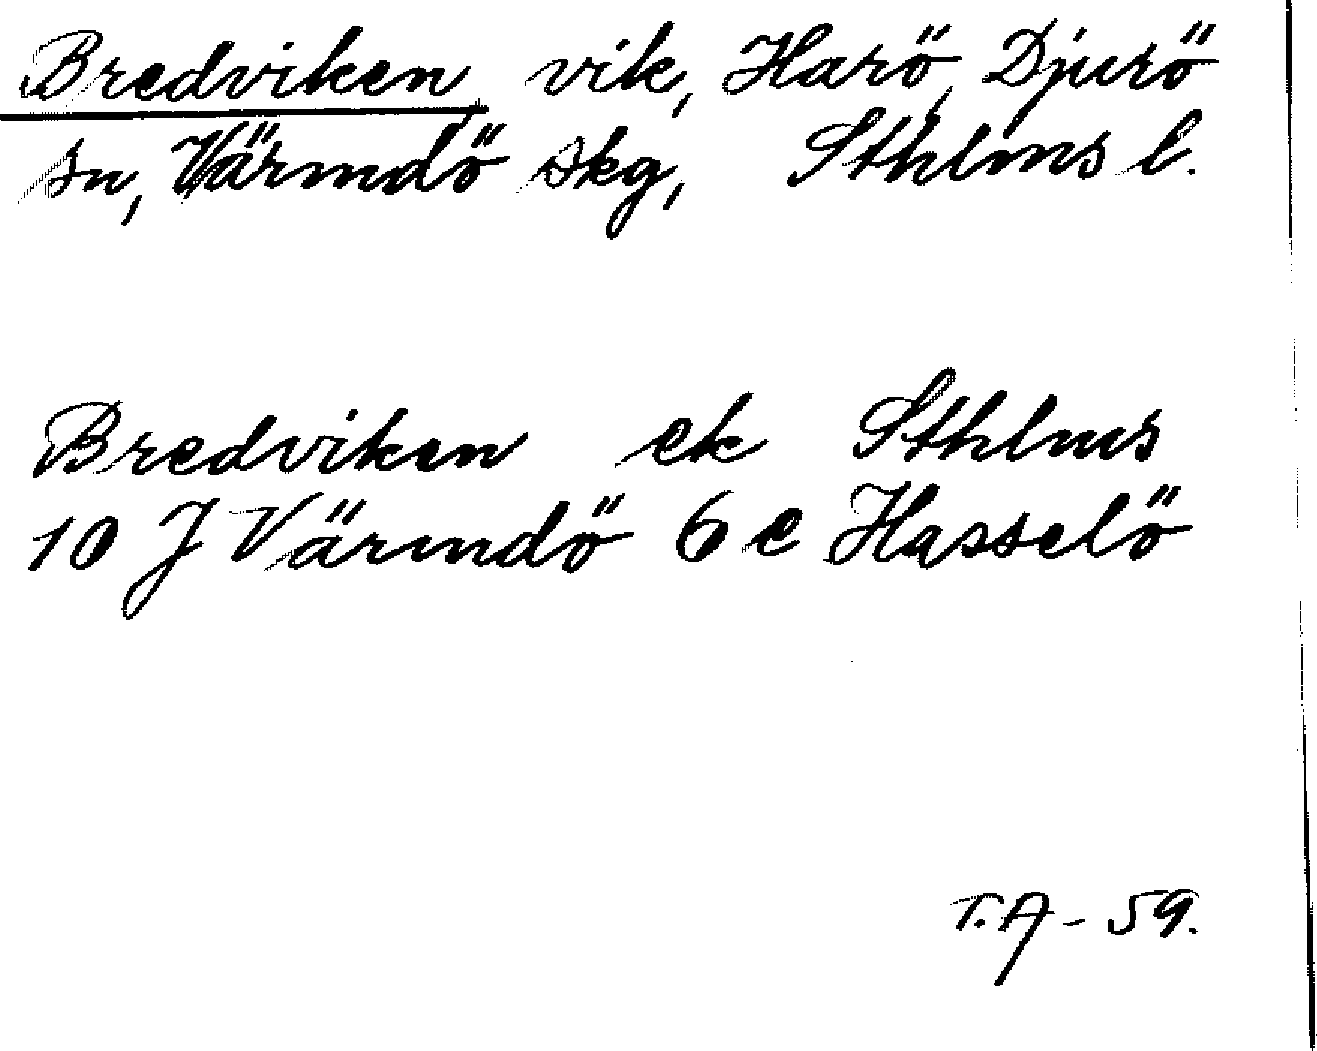 Bredviken vik, Harö, Djurö
sn, Värmdö skg, Sthlms l.
Bredviken ek Sthlms
10 J Värmdö 6 e Hasselö
T.A - 59.